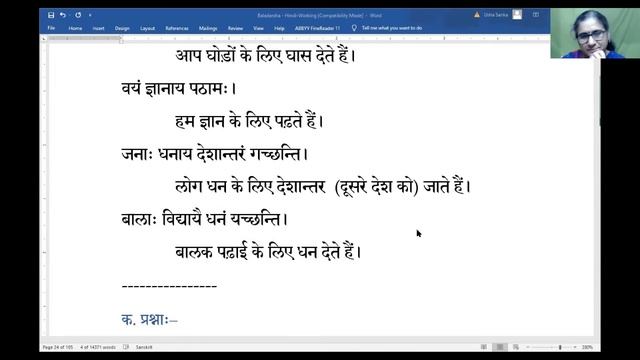 Baladarsha - Hindi-Working [Compatibility Mode] - Word
Usha Sanka
References Mailings Review View ABBYY FineReader 11 Tell me what you want to do
आप घोड़ों के लिए घास देते हैं।
वयं ज्ञानाय पठामः।
हम ज्ञान के लिए पढ़ते हैं।
जनाः धनाय देशान्तरं गच्छन्ति।
लोग धन के लिए देशान्तर (दूसरे देश को) जाते हैं।
बालाः विद्यायै धनं यच्छन्ति।
बालक पढ़ाई के लिए धन देते हैं।
----------------
क. प्रश्नाः–
Page 24 of 105 4 of 14371 words Sanskrit